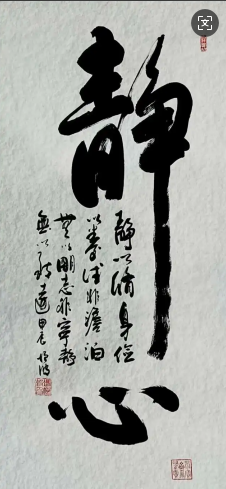 静心
静以脩身儉
以養德非澹泊
無以明志非寧静
無以致遠甲辰